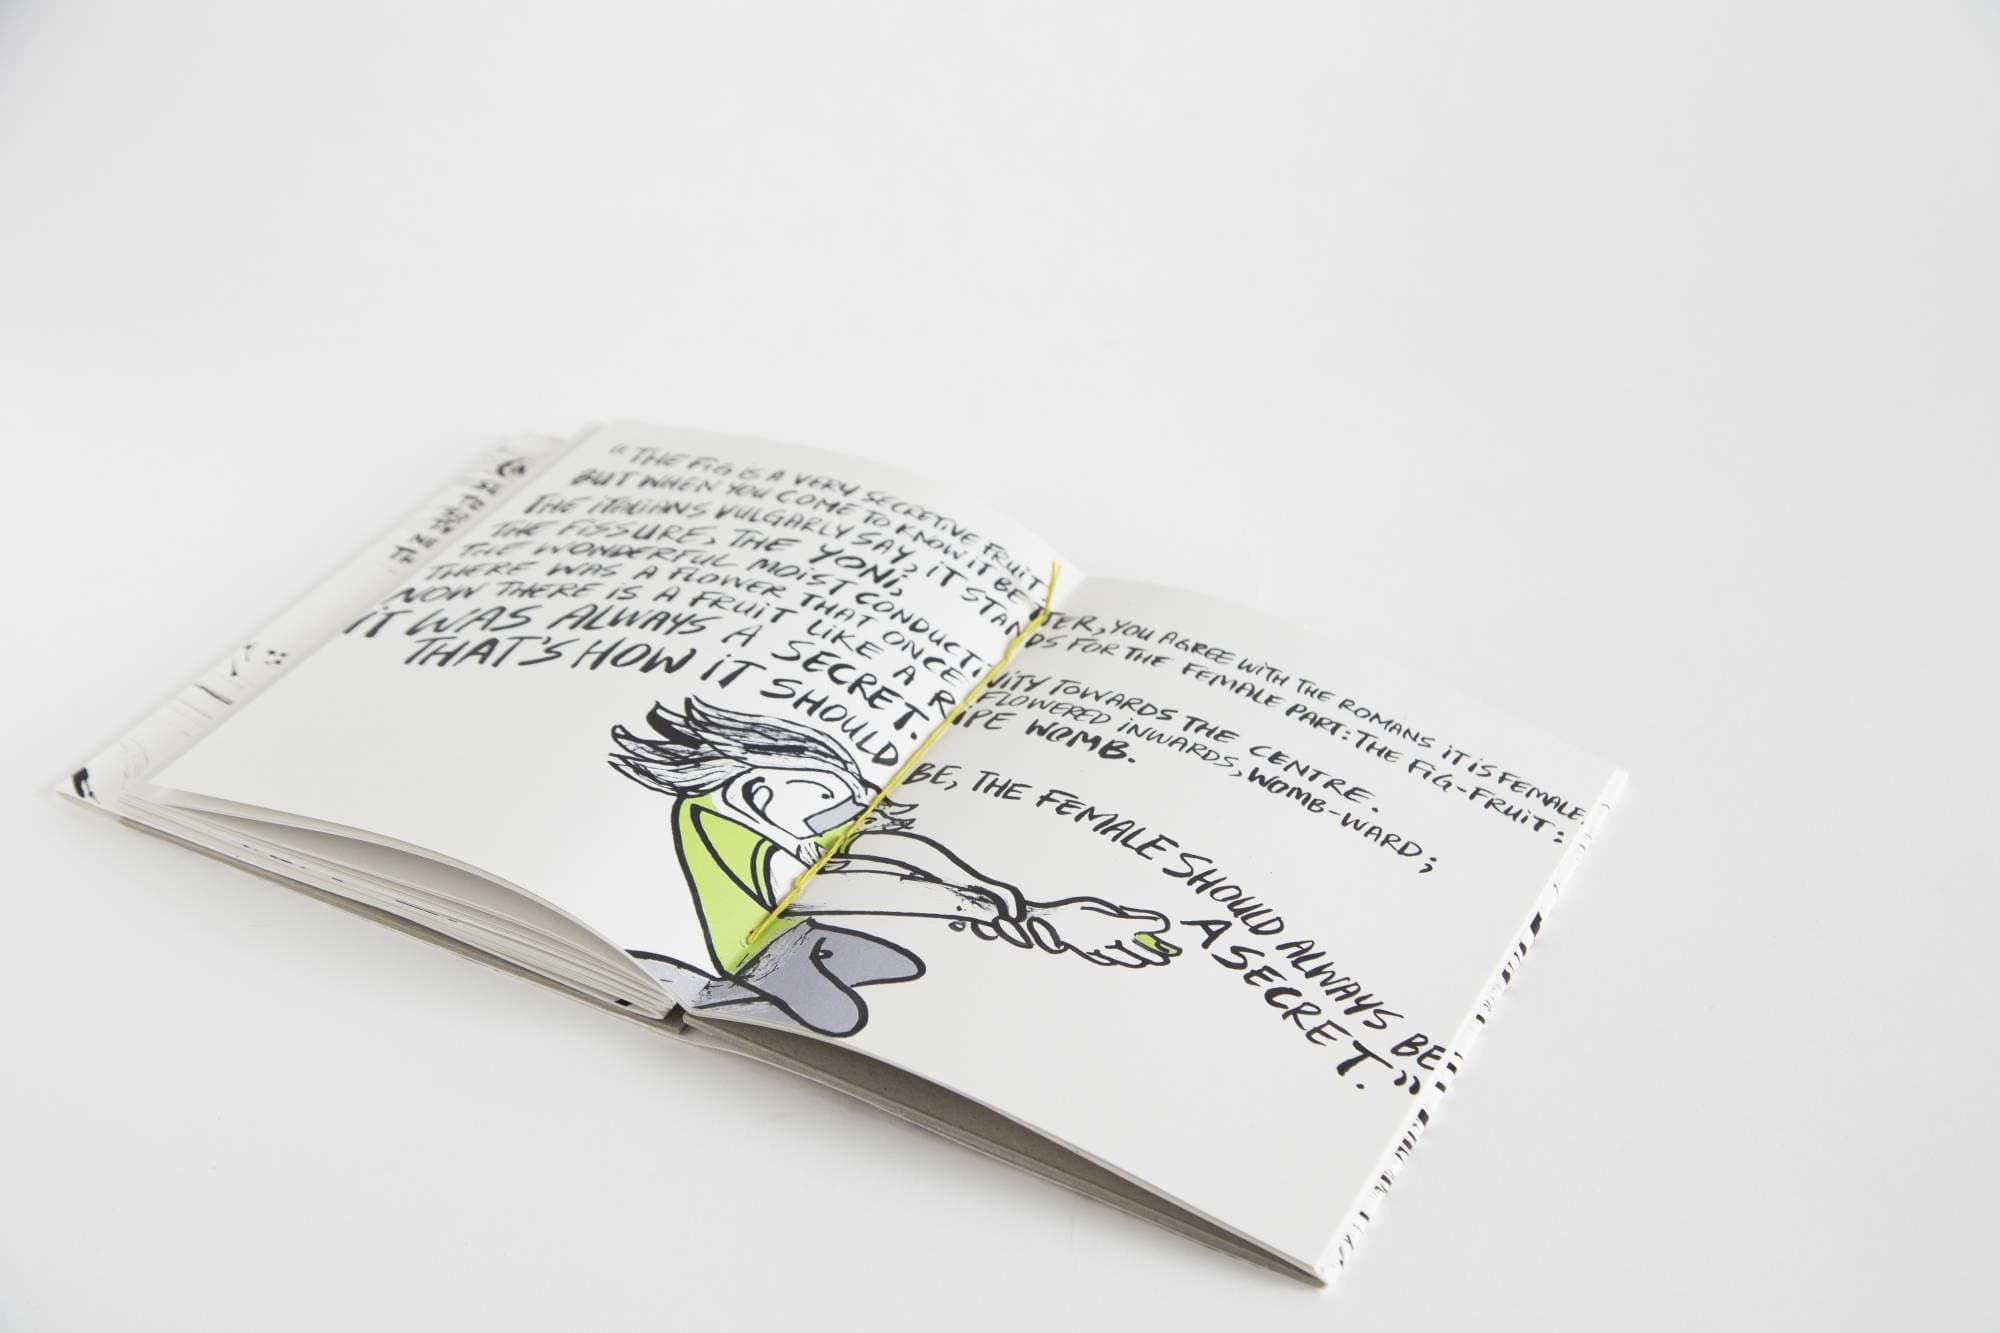 “THE FIG IS A VERY SECRETIVE FRUIT.
BUT WHEN YOU COME TO KNOW IT BETTER, YOU AGREE WITH THE ROMANS IT IS FEMALE.
THE ITALIANS VULGARLY SAY, IT STANDS FOR THE FEMALE PART: THE FIG-FRUIT:
THE FISSURE, THE YONI,
THE WONDERFUL MOIST CONDUCTIVITY TOWARDS THE CENTRE.
THERE WAS A FLOWER THAT ONCE FLOWERED INWARDS, WOMB-WARD;
NOW THERE IS A FRUIT LIKE A RIPE WOMB.
IT WAS ALWAYS A SECRET.
THAT'S HOW IT SHOULD BE, THE FEMALE SHOULD ALWAYS BE
A SECRET.”